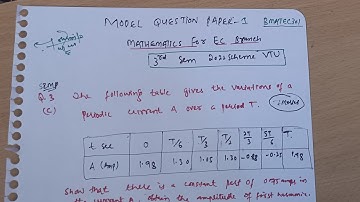 MODEL QUESTION PAPER-1 BMATEC301
MATHEMATICS FOR EC Branch
3rd Sem 2022 Scheme VTU
Q.3 The following table gives the variations of a
(C) periodic current A over a period T.
t sec 0 T/6 T/3 T/2 2T/3 5T/6 T
A (Amp) 1.98 1.30 1.05 1.30 -0.88 -0.25 1.98
Show that there is a constant part of 0.75 amps in
the current A, obtain the amplitude of first harmonic.